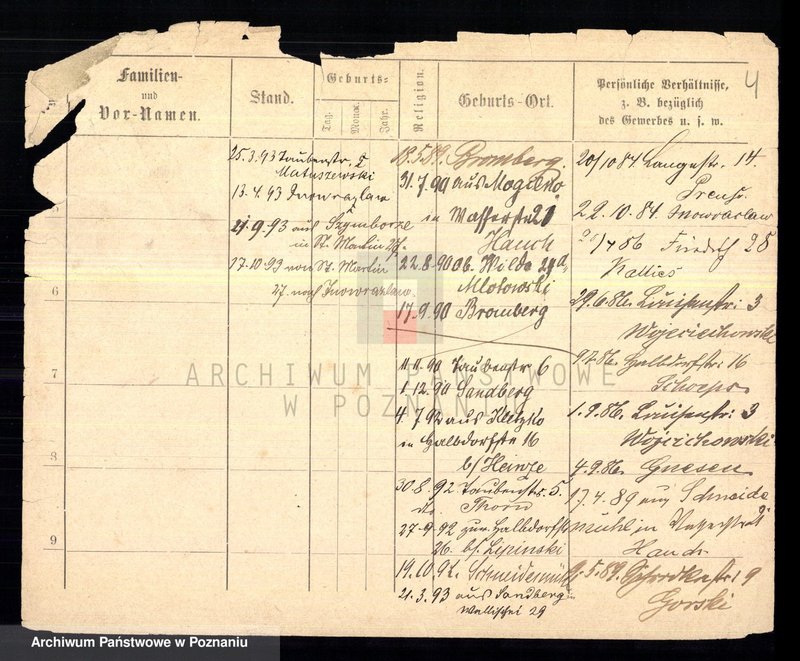 Familien-
und
Vor-Namen.
Stand.
Geburts-
Tag.
Monat.
Jahr.
Religion.
Geburts-Ort.
Persönliche Verhältnisse,
z. B. bezüglich
des Gewerbes u. s. w.
4
25.3.93 Taubenstr. 5
Matuszewski
13.4.93 Inowrazlaw
21.9.93 aus Szymborze
in St. Martin 27
17.10.93 von St. Martin
27. nach Inowrazlaw
6
7
8
9
18.5.89. Bromberg.
31.7.90 aus Mogilno
in Wasserstr 21
Hauch
22.8.90 Ob. Wilda 29a
Mlotowski
17.9.90 Bromberg
11.11.90 Taubenstr 6
1.12.90 Sandberg
4.7.92 aus Kletzko
in Halbdorfstr 16
b/ Heinze
30.8.92 Taubenstr. 5.
Thorn
27.9.92 zur Halbdorfstr
26. b/ Lipinski
19.10.92. Schneidemühl
21.3.93 aus Sandberg in
Wallischei 29
20/10 84 Langestr. 14.
Preuß.
22.10.84. Inowrazlaw
86 Friedrich 28
Kallies
29.6.86. Louisenstr: 3
Wojciechowski
9.7.86. Halbdorfstr: 16
Schoeps
1.9.86. Louisenstr: 3
Wojciechowski
4.9.86. Gnesen
17.4.89 aus Schneide
mühl in
Hauch
5.89. 9
Gorski
ARCHIWUM PAŃSTWOWE
W POZNANIU
Archiwum Państwowe w Poznaniu